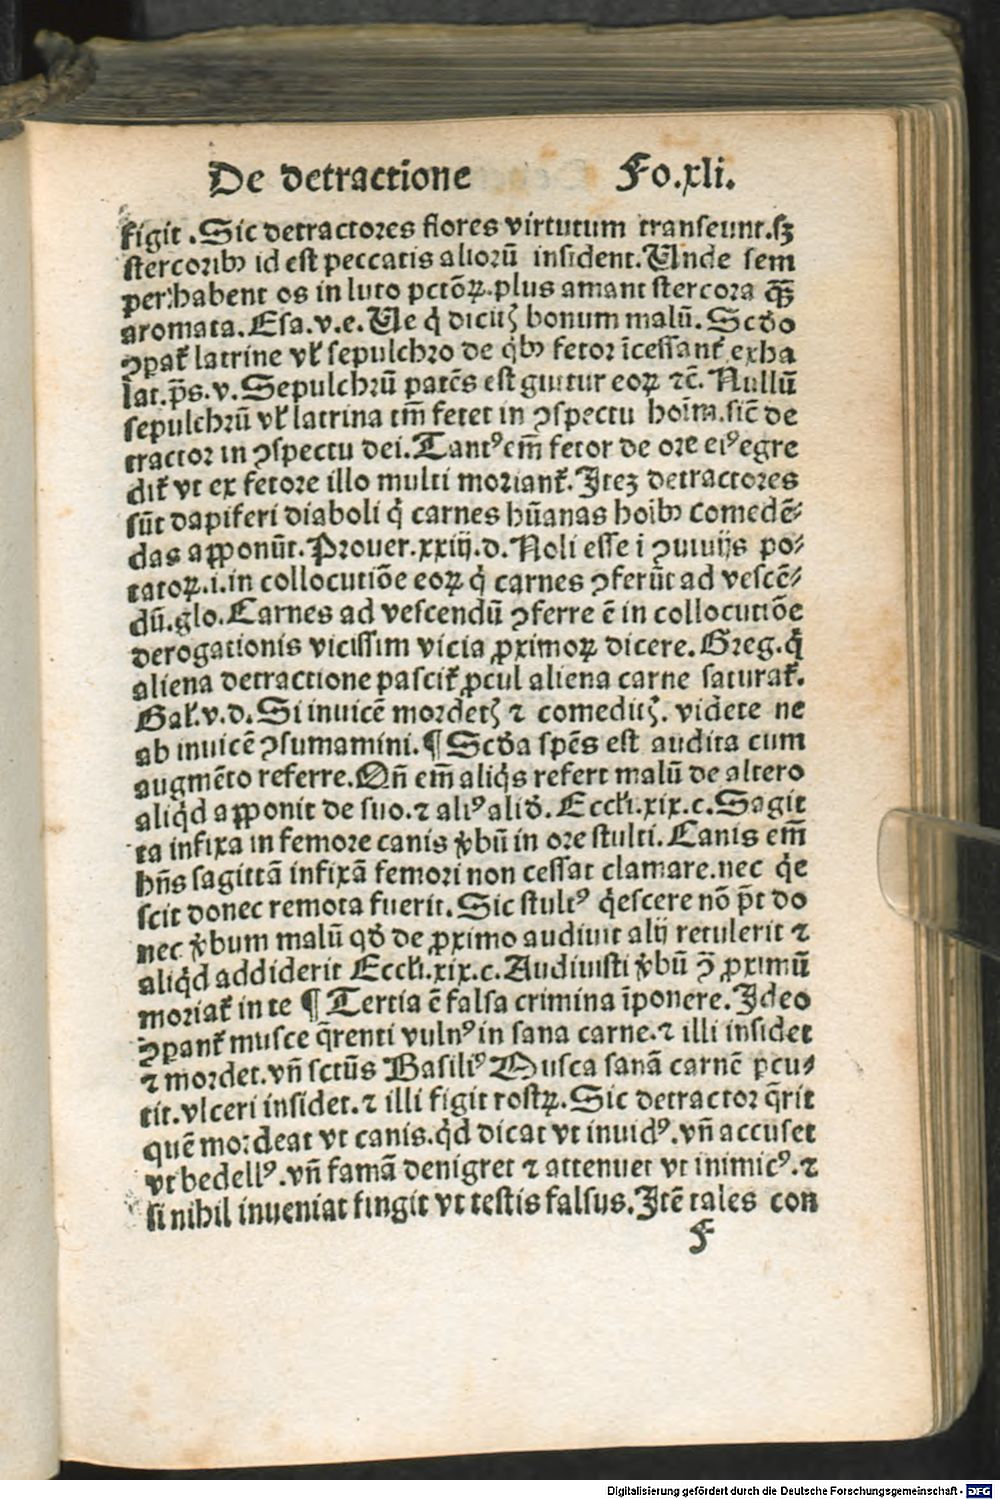 De detractione Fo.xli.
figit .Sic detractores flores virtutum transeunt.sꝫ
stercoribꝰ id est peccatis aliorū insident.Unde sem
per habent os in luto pctōꝝ.plus amant stercora qꝫ̄
aromata.Esa.v.e.Ue q̇ dicitꝭ bonum malū.Scd̄o
ꝯpat᷑ latrine vl̓ sepulchro de qbꝰ fetor īcessant᷑ exha
lat.p̄s.v.Sepulchrū patēs est guttur eoꝝ ⁊c̄.Nullū
sepulchrū vl̓ latrina tm̄ fetet in ꝯspectu hoīm.sic̄ de
tractor in ꝯspectu dei.Tantꝰ em̄ fetor de ore eiꝰ egre
dit᷑ vt ex fetore illo multi moriant᷑.Iteꝫ detractores
sūt dapiferi diaboli q̇ carnes hūanas hoibꝰ comedē⸗
das apponūt.Prouer.xxiij.d.Noli esse i ꝯuiuijs po⸗
tatoꝝ.i.in collocutiōe eoꝝ q̇ carnes ꝯferūt ad vescē⸗
dū.glo.Carnes ad vescendū ꝯferre ē in collocutiōe
derogationis vicissim vicia ꝓximoꝝ dicere.Greg.q̇
aliena detractione pascit᷑ ꝓcul aliena carne saturat᷑.
Gal̓.v.d.Si inuicē mordetꝭ ⁊ comeditꝭ. videte ne
ab inuicē ꝯsumamini.¶ Scd̄a spēs est audita cum
augmēto referre.Qn̄ em̄ aliq̇s refert malū de altero
aliq̇d apponit de suo.⁊ aliꝰ alid̄.Eccl̓i.xix.c.Sagit
ta infixa in femore canis v̓bū in ore stulti.Canis em̄
hn̄s sagittā infixā femori non cessat clamare.nec q̇e
scit donec remota fuerit.Sic stultꝰ q̇escere nō pt̄ do
nec v̓bum malū qd̄ de ꝓximo audiuit alij retulerit ⁊
aliq̇d addiderit Eccl̓i.xix.c.Audiuisti v̓bū ꝯ̄ ꝓximū
moriat᷑ in te ¶ Tertia ē falsa crimina īponere.Ideo
ꝯpant᷑ musce q̄renti vulnꝰ in sana carne.⁊ illi insidet
⁊ mordet.vn̄ sctūs Basiliꝰ Musca sanā carnē ꝑcu⸗
tit.vlceri insidet.⁊ illi figit rostꝝ.Sic detractor q̄rit
quē mordeat vt canis.q̇d dicat vt inuidꝰ.vn̄ accuset
vt bedellꝰ.vn̄ famā denigret ⁊ attenuet vt inimicꝰ.⁊
si nihil inueniat fingit vt testis falsus.Itē tales con
F
Digitalisierung gefördert durch die Deutsche Forschungsgemeinschaft - DFG